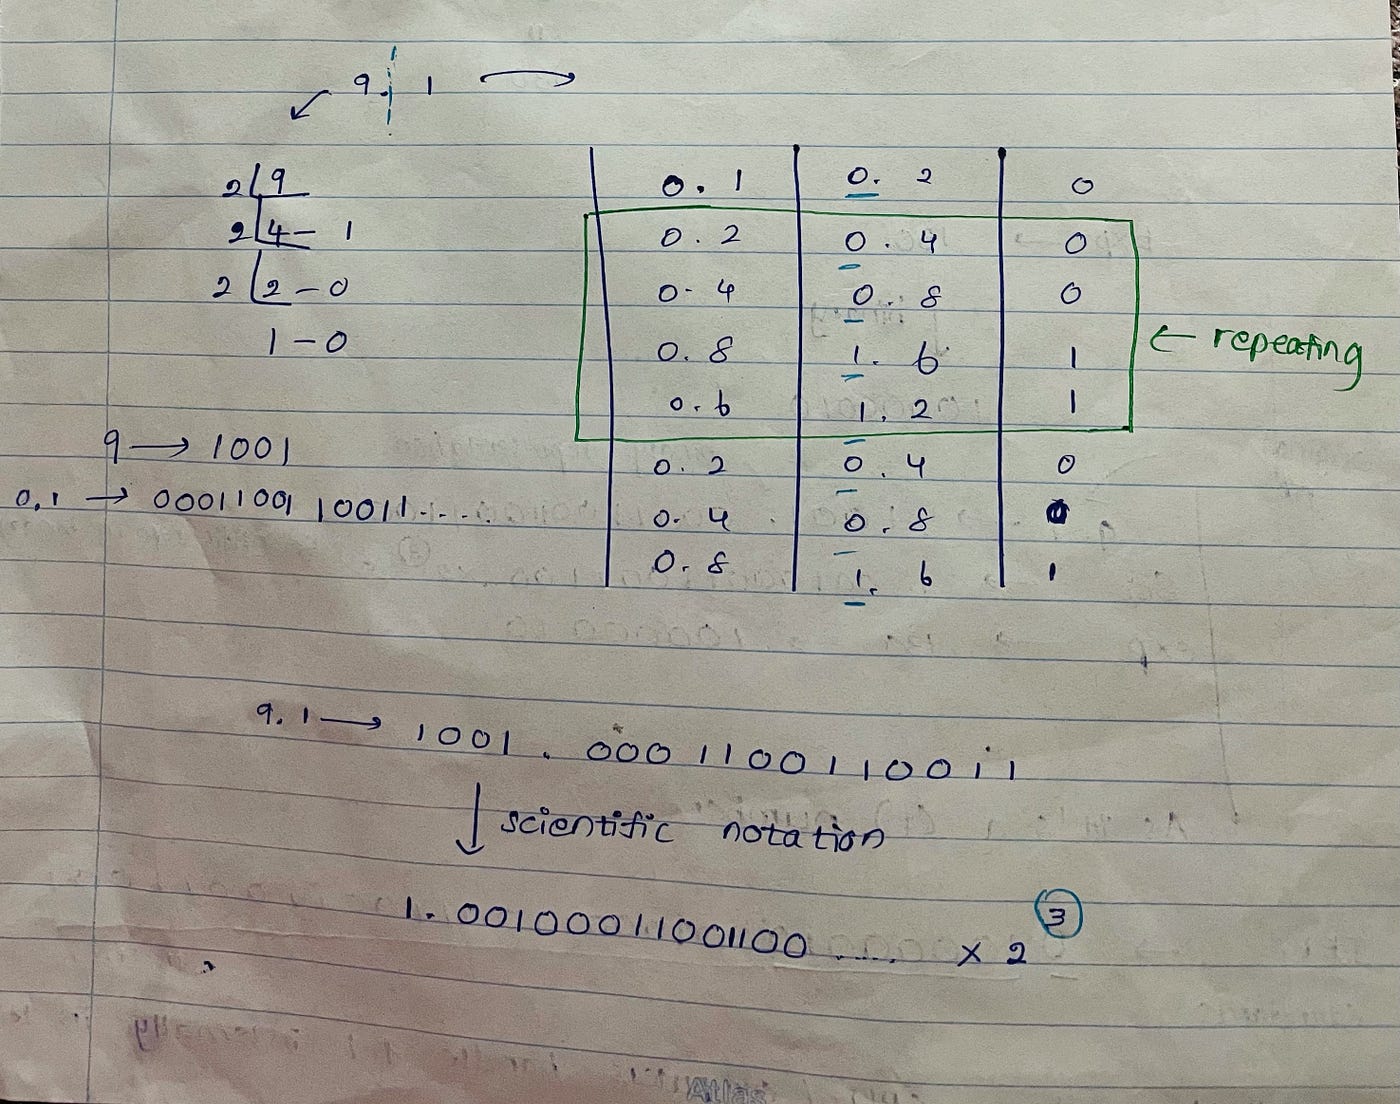 9. 1
2 9
2 4 - 1
2 2 - 0
1 - 0
9 → 1001
0.1 → 0001100110011....
0.1 0.2 0
0.2 0.4 0
0.4 0.8 0
0.8 1.6 1
0.6 1.2 1
← repeating
0.2 0.4 0
0.4 0.8 0
0.8 1.6 1
9.1 → 1001.0001100110011
↓ scientific notation
1.00100011001100 ..... x 2 3